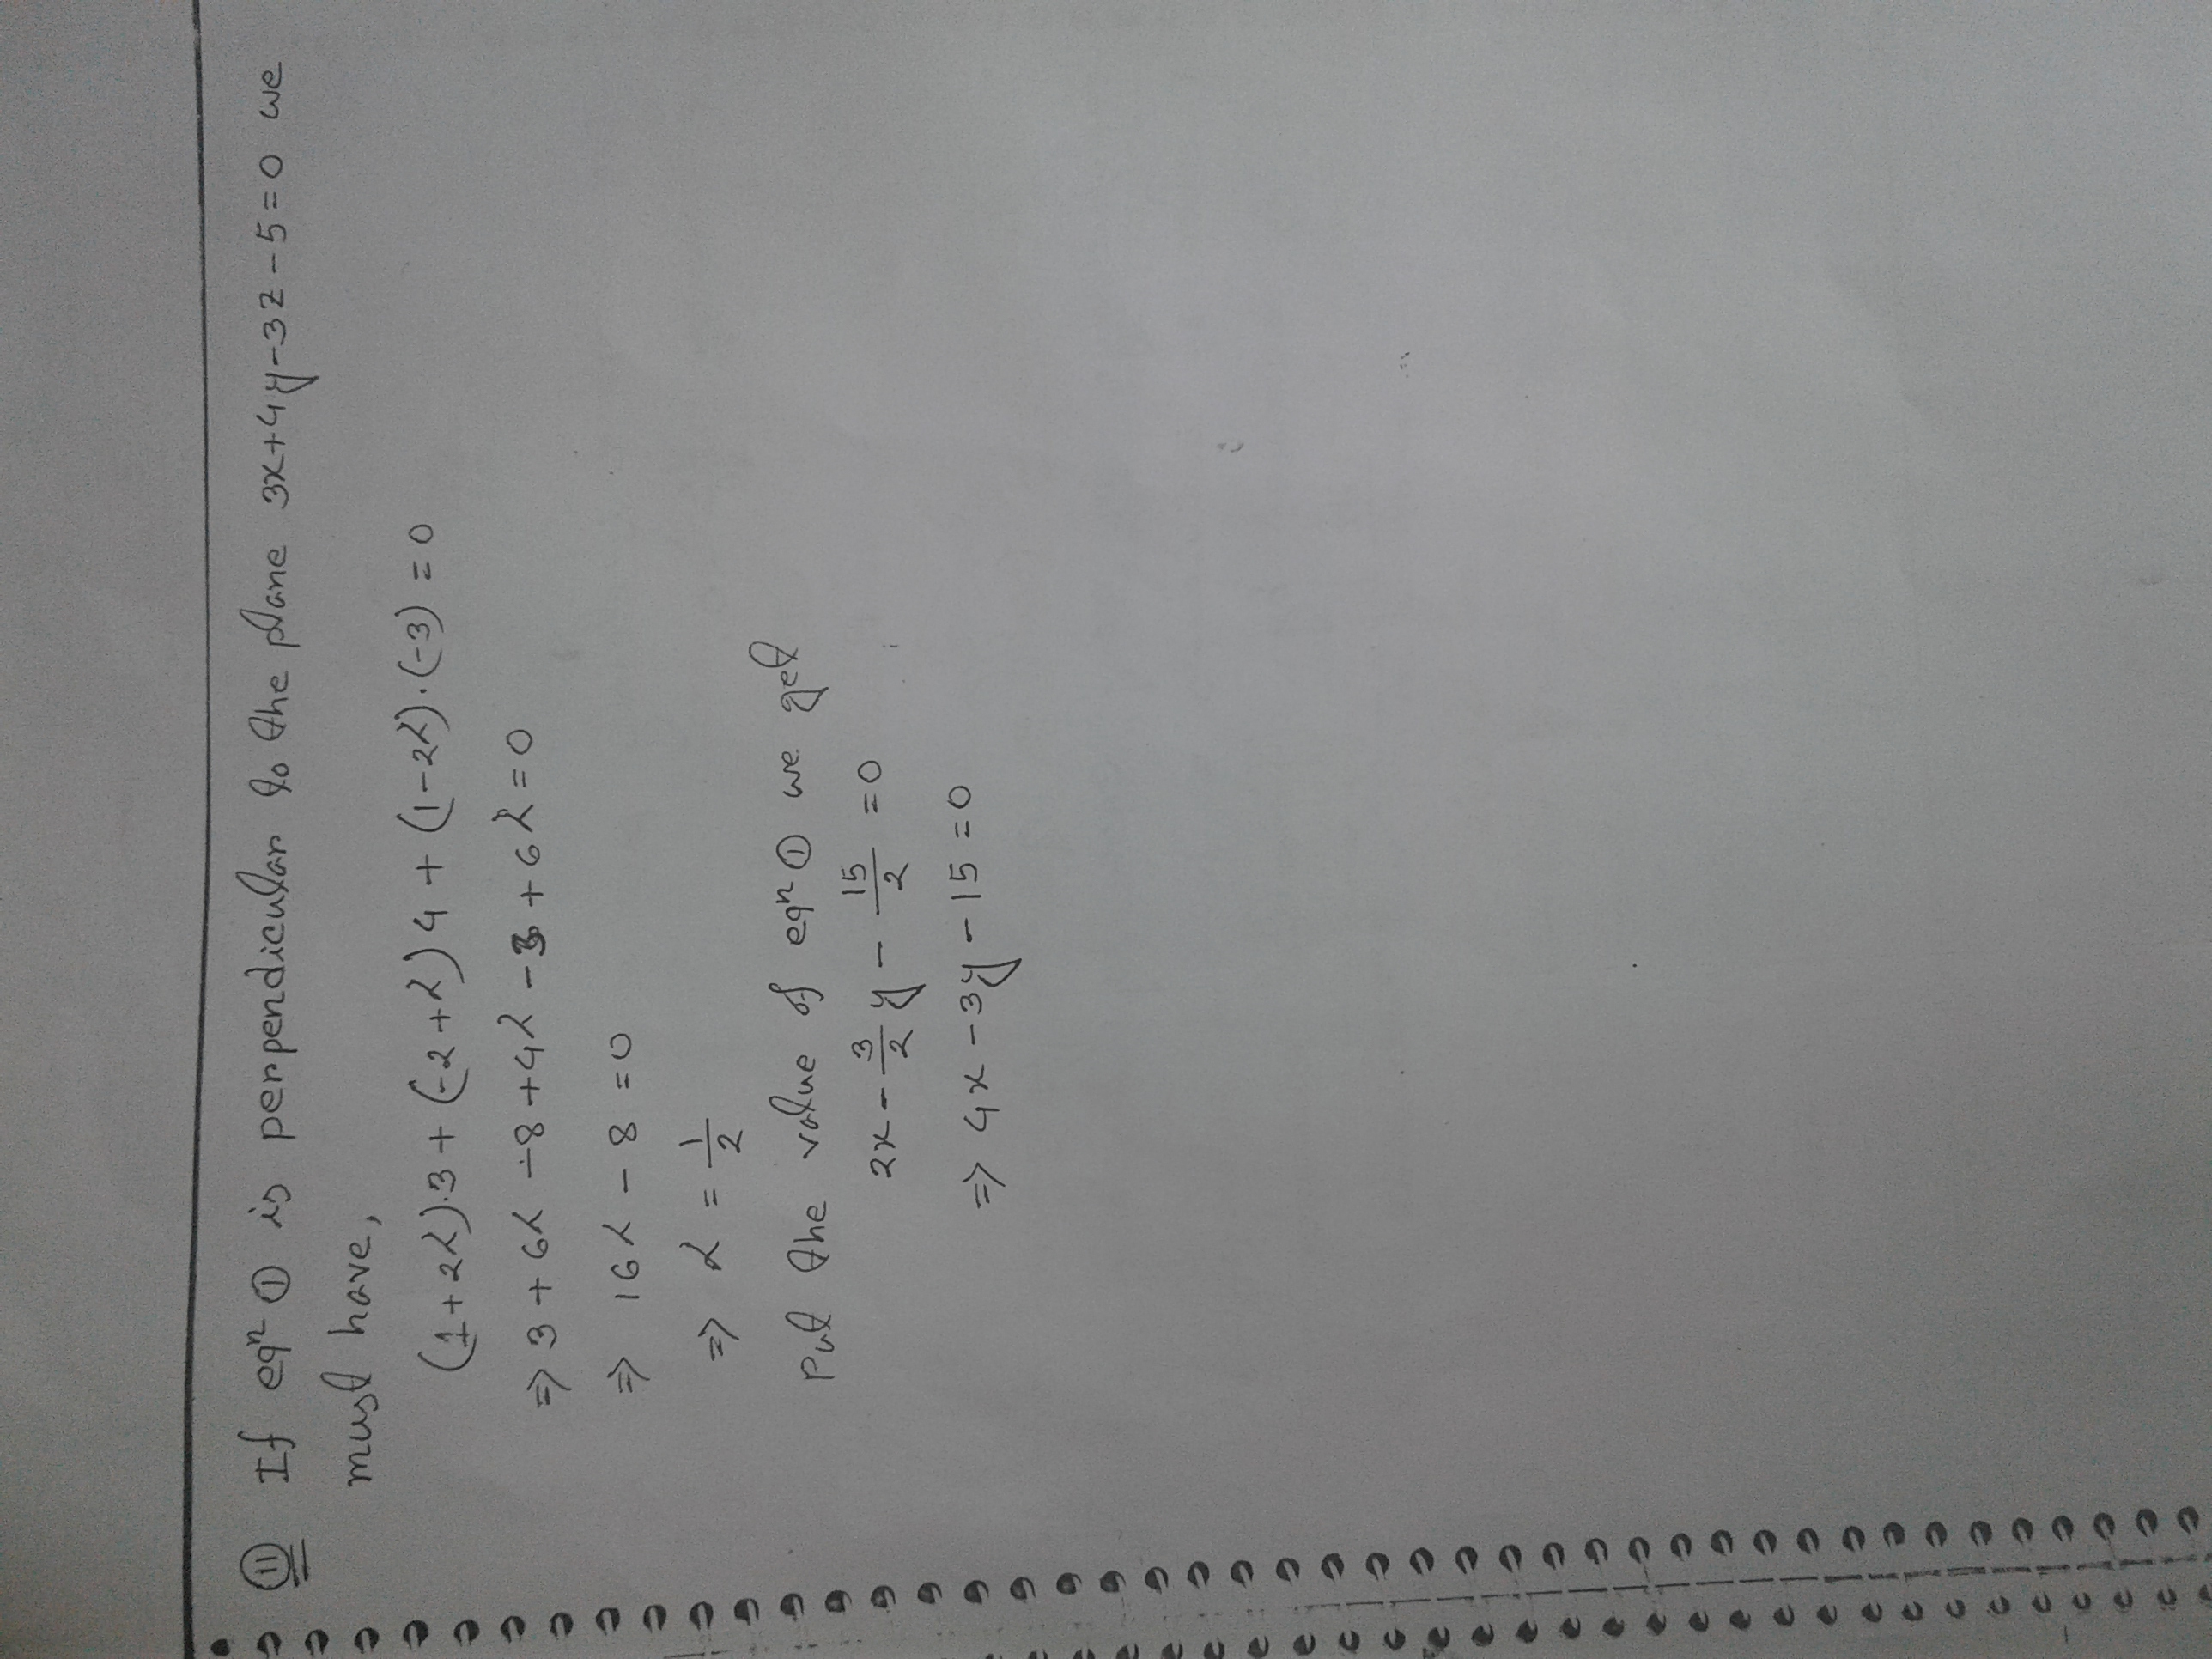 (11) If eqⁿ ① is perpendicular to the plane 3x+4y-3z-5=0 we
must have,
(1+2λ).3+(-2+λ)4+(1-2λ).(-3)=0
⇒ 3+6λ-8+4λ-3+6λ=0
⇒ 16λ-8=0
⇒ λ = 1/2
Put the value of eqⁿ ① we get
2x - 3/2 y - 15/2 = 0
⇒ 4x-3y-15=0